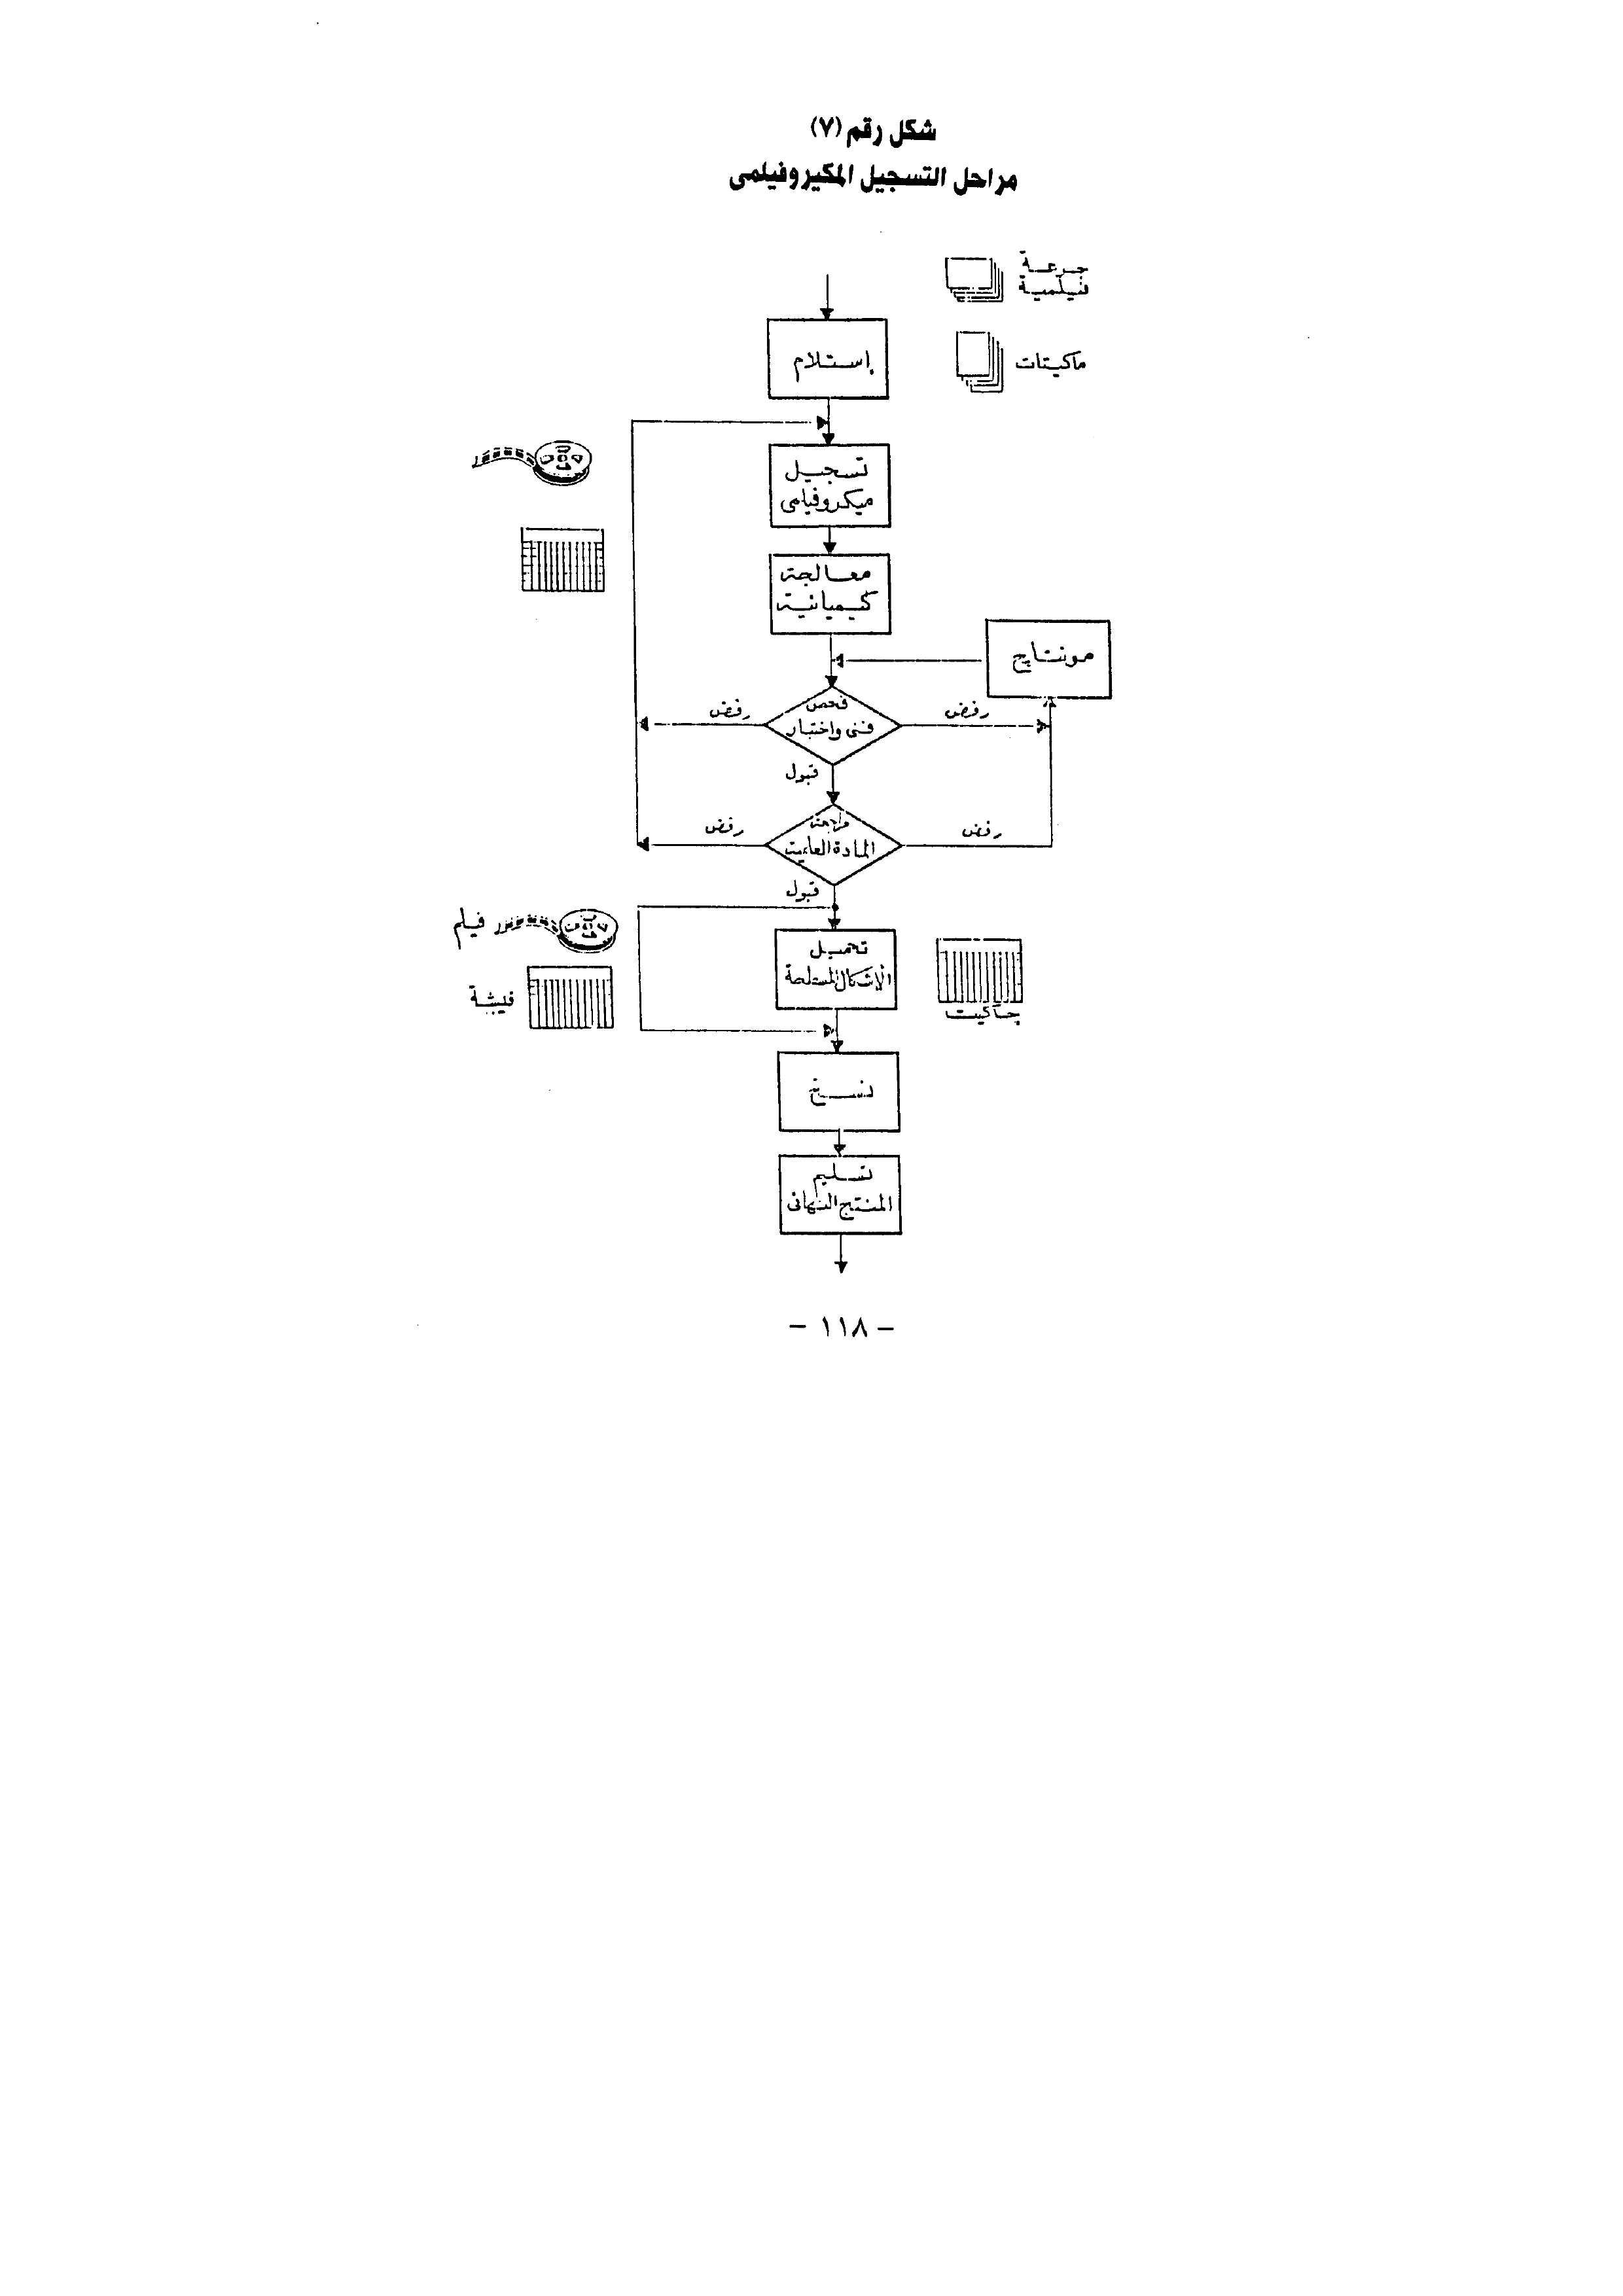 شكل رقم (٧)
مراحل التسجيل المكيروفيلمى
جرعة
فيلمية
إستلام
ماكيتات
تسجيل
ميكروفيلمى
معالجة
كيميائية
مونتاج
فحص
فنى واختبار
رفض
رفض
قبول
مراجعة
المادة العلمية
رفض
رفض
قبول
فيلم
فيشة
تحميل
الأشكال المسطحة
جاكيت
نسخ
تسليم
المنتج النهائى
- ١١٨ -